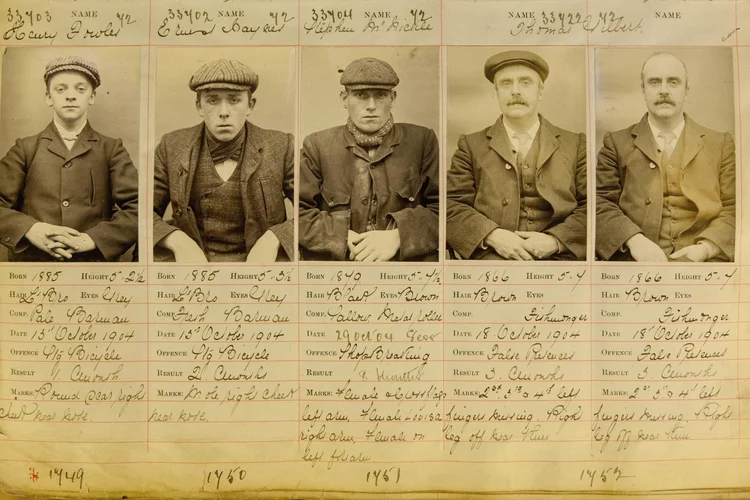 33703 NAME 72
Henry Fowler
33702 NAME 72
Ernest Haynes
33704 NAME 72
Stephen McNickle
NAME 33722 72 NAME
Thomas Gilbert
BORN 1885 HEIGHT 5-2½
HAIR L Bro EYES Grey
COMP. Pale Barman
DATE 13th October 1904
OFFENCE Bicycle
RESULT 1 Month
MARKS: Round scar right
cheek near nose.
BORN 1885 HEIGHT 5-5½
HAIR L Bro EYES Grey
COMP. Fresh Barman
DATE 13th October 1904
OFFENCE Bicycle
RESULT 2 Months
MARKS: Mole right cheek
near nose.
BORN 1879 HEIGHT 5-7½
HAIR Black EYES Brown
COMP. Sallow Metal
DATE 29 Oct 04
OFFENCE Shop Breaking
RESULT 9 Months
MARKS: Female
left arm, Female
right arm, Female on
left f'arm
BORN 1866 HEIGHT 5-7
HAIR Brown EYES
COMP. Fishmonger
DATE 18 October 1904
OFFENCE False Pretences
RESULT 3 Months
MARKS: 2nd 3rd & 4th left
fingers missing. Right
leg off near knee
BORN 1866 HEIGHT 5-7
HAIR Brown EYES
COMP. Fishmonger
DATE 18 October 1904
OFFENCE False Pretences
RESULT 3 Months
MARKS: 2nd 3rd & 4th left
fingers missing. Right
leg off near knee
1749 1750 1751 1752